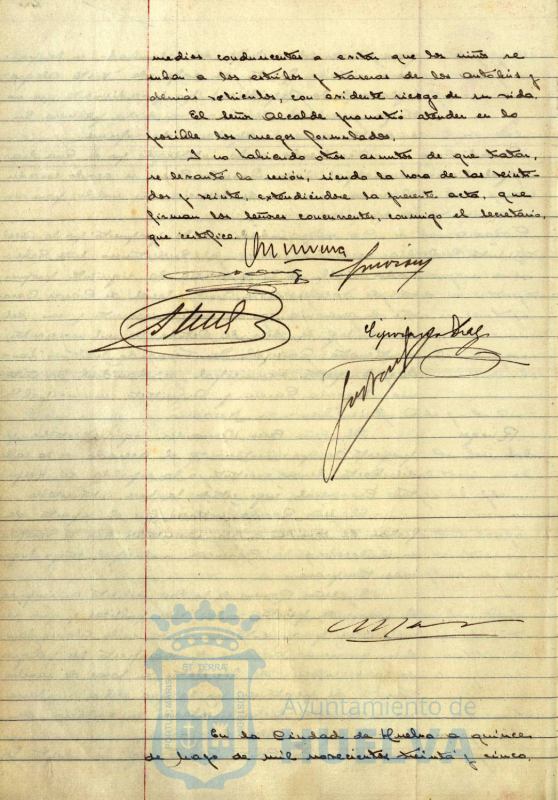 medios conducentes a evitar que los niños se
suban a los estribos y traseras de los autobús y
demás vehículos, con evidente riesgo de su vida.
El señor Alcalde prometió atender en lo
posible los ruegos formulados.
Y no habiendo otros asuntos de que tratar,
se levantó la sesión, siendo la hora de las veinti-
dos y veinte, extendiéndose la presente acta, que
firman los señores concurrentes, conmigo el Secretario,
que certifico.
Díaz
ST TERRÆ
Ayuntamiento de
HUELVA
En la Ciudad de Huelva a quince
de mayo de mil novecientos treinta y cinco,